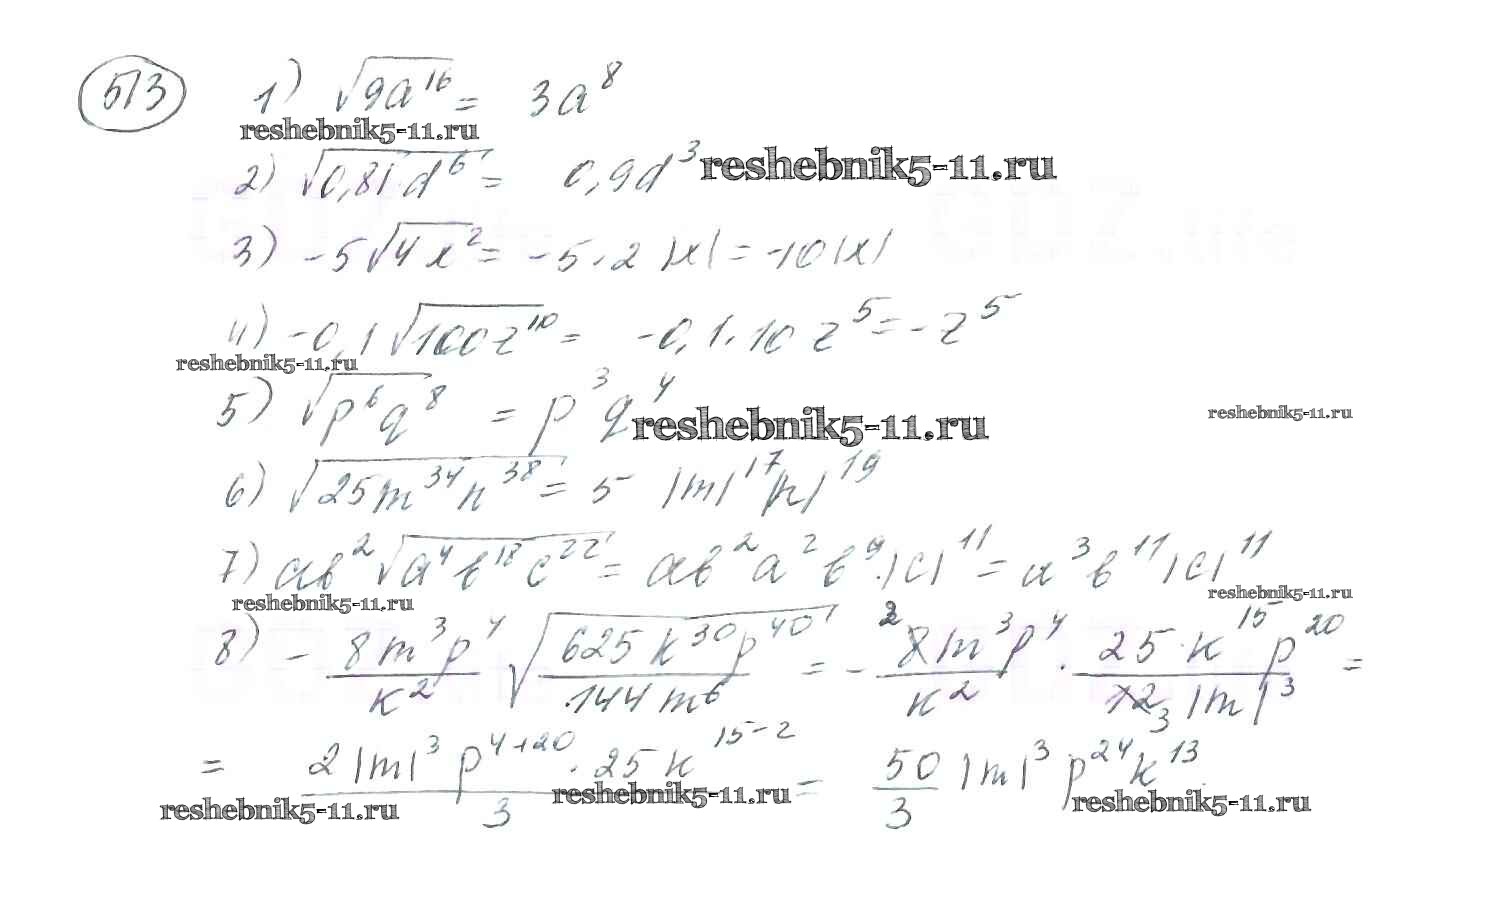 513 1) √9a¹⁶ = 3a⁸
reshebnik5-11.ru
2) √0,81d⁶ = 0,9d³ reshebnik5-11.ru
3) -5√4x² = -5·2|x| = -10|x|
4) -0,1√100z¹⁰ = -0,1·10z⁵ = -z⁵
reshebnik5-11.ru
5) √p⁶q⁸ = p³q⁴ reshebnik5-11.ru reshebnik5-11.ru
6) √25m³⁴n³⁸ = 5|m|¹⁷|n|¹⁹
7) ab²√a⁴b¹⁸c²² = ab²a²b⁹·|c|¹¹ = a³b¹¹|c|¹¹
reshebnik5-11.ru reshebnik5-11.ru
8) - 8m³p⁴/k² √625k³⁰p⁴⁰/144m⁶ = - 2 8|m³p⁴/k² · 25·k¹⁵p²⁰/12 3|m|³ =
= 2|m|³p⁴⁺²⁰·25k¹⁵⁻²/3 = 50/3 |m|³p²⁴k¹³
reshebnik5-11.ru reshebnik5-11.ru reshebnik5-11.ru